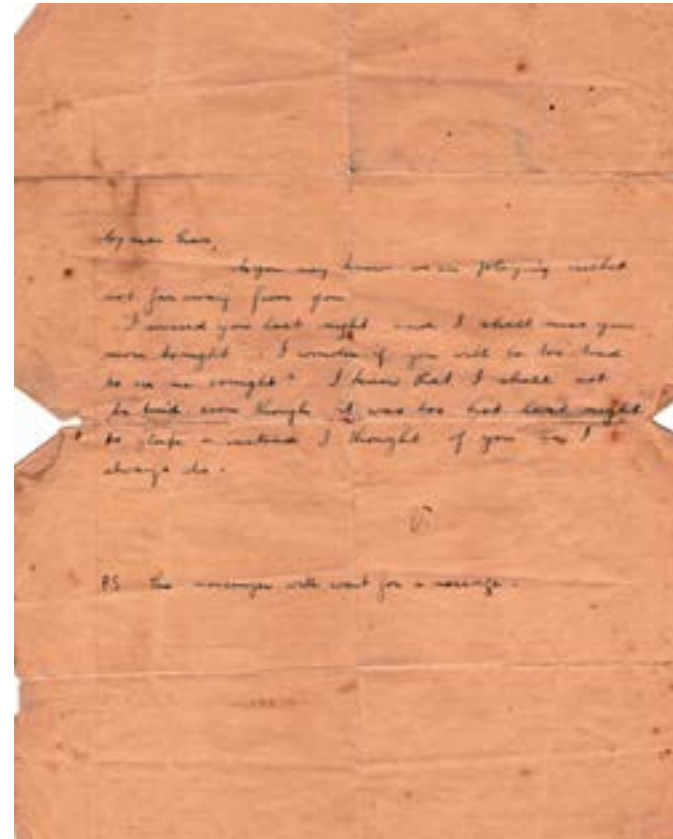 My dear
As you may know we are playing cricket
not far away from you
I missed you last night and I shall miss you
more tonight. I wonder if you will be too tired
to see me tonight? I know that I shall not
be tired even though it was too hot last night
to sleep instead I thought of you as I
always do.
V
PS The messenger will wait for a message.